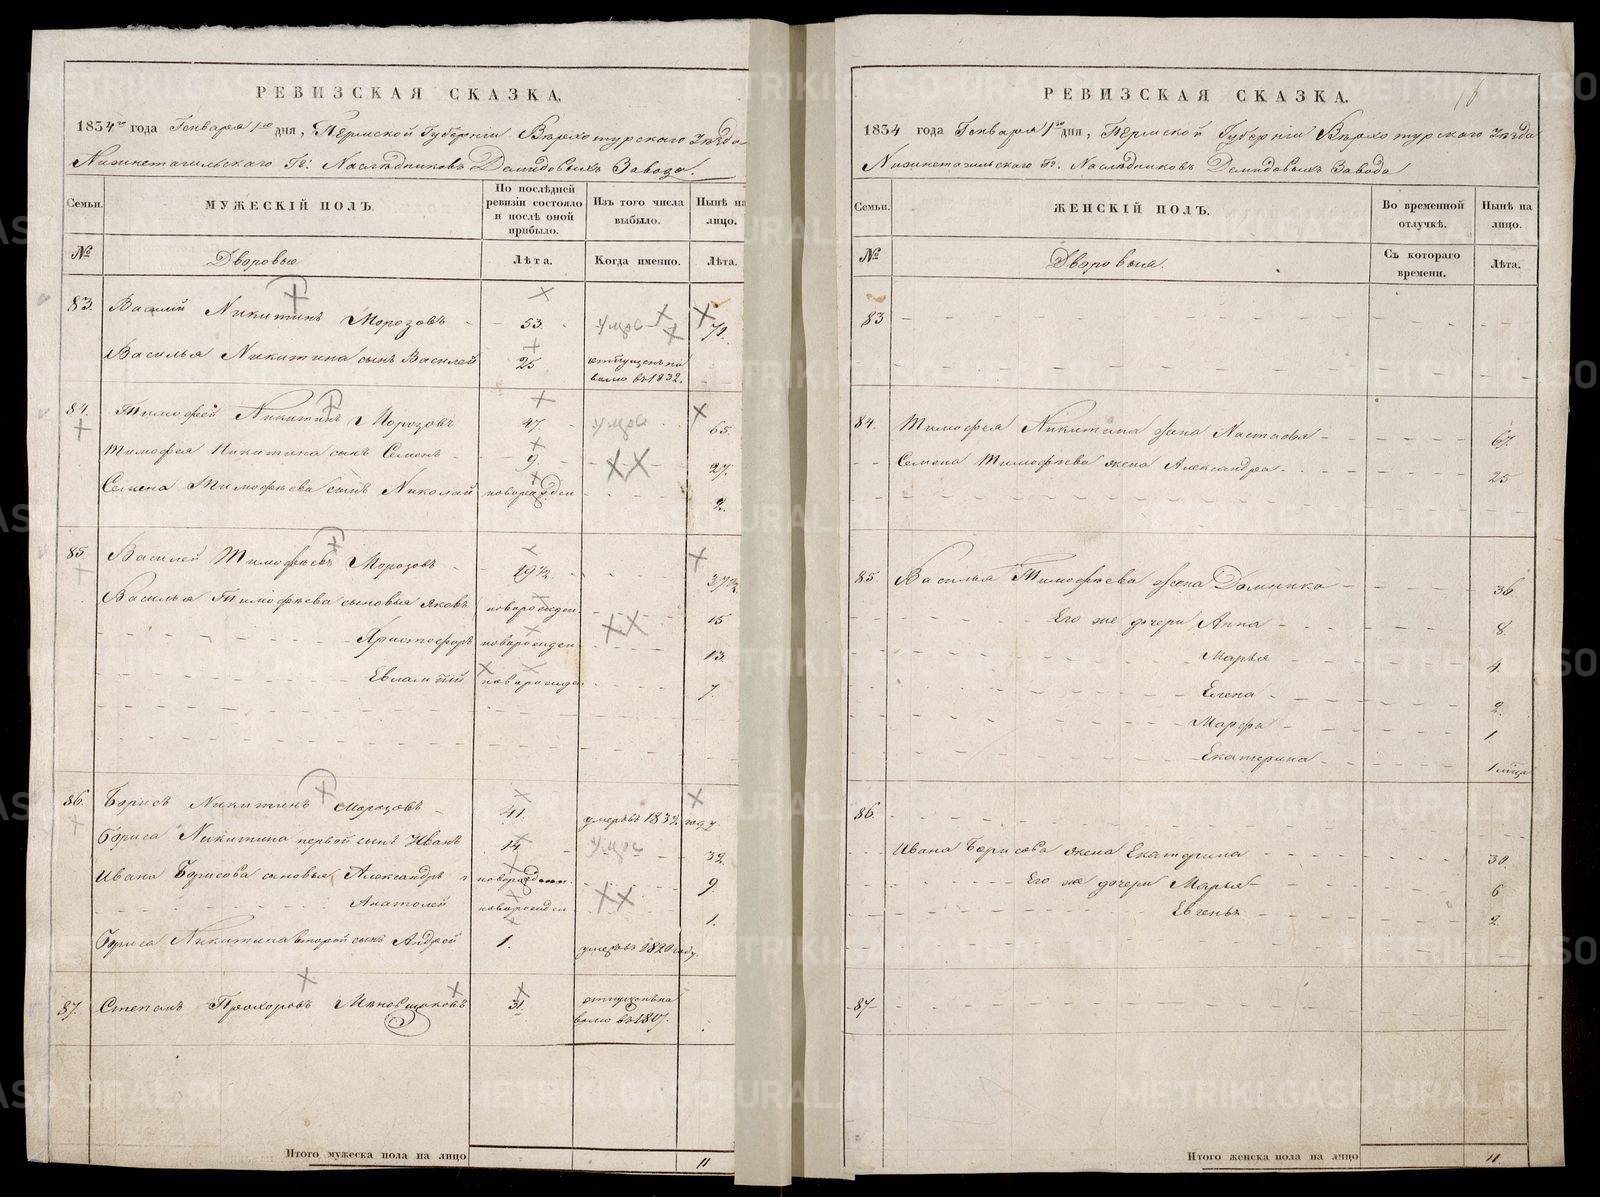 РЕВИЗСКАЯ СКАЗКА,
1834го года Генваря 1го дня, Пермской Губерніи Верхотурскаго Уезда
Нижнетагильскаго Гг: Наследниковъ Демидовыхъ Завода.
Семьи. МУЖЕСКІЙ ПОЛЪ. По послѣдней ревизіи состояло и послѣ оной прибыло. Изъ того числа выбыло. Нынѣ на лицо.
№ Дворовые Лѣта. Когда именно. Лѣта.
83. Василий Никитинъ Морозовъ 53. умре 71.
Василья Никитина сынъ Василей 25 отпущенъ на волю въ 1832.
84. Тимофей Никитинъ Морозовъ 47. умре 65.
Тимофея Никитина сынъ Семенъ 9. 27.
Семена Тимофеева сынъ Николай новорожден 2.
85 Василей Тимофеевъ Морозовъ 19 1/2 37 1/2
Василья Тимофеева сыновья Яковъ новорожден. 15
Христофоръ новорожден 13.
Евлампій новорожден 7.
86. Борисъ Никитинъ Морозовъ 41. умеръ въ 1832 году.
Бориса Никитина первой сынъ Иванъ 14. умре 32.
Ивана Борисова сыновья, Александръ новорожден. 9
Анатолей новорожден 1.
Бориса Никитина второй сынъ Андрей 1. умеръ 1820 году.
87. Степанъ Прохоровъ Меновщиковъ 31. отпущенъ на волю въ 1807.
Итого мужеска пола на лицо 11
16
РЕВИЗСКАЯ СКАЗКА.
1834 года Генваря 1го дня, Пермской Губерніи Верхотурскаго Уезда
Нижнетагильскаго Гг. Наследниковъ Демидовыхъ Завода
Семьи. ЖЕНСКІЙ ПОЛЪ. Во временной отлучкѣ. Нынѣ на лицо.
№ Дворовыя. Съ котораго времени. Лѣта.
83
84. Тимофея Никитина жена Настасья 67.
Семена Тимофеева жена Александра. 25
85. Василья Тимофеева жена Домника 36
Его же дочери Анна 8.
Марья 4.
Елена 2.
Марфа 1.
Екатерина 1 мѣся
86.
Ивана Борисова жена Екатерина 30.
Его же дочери Марья 6
Евгенья 2
87
Итого женска пола на лицо 11.
METRIKI.GASO-URAL.RU